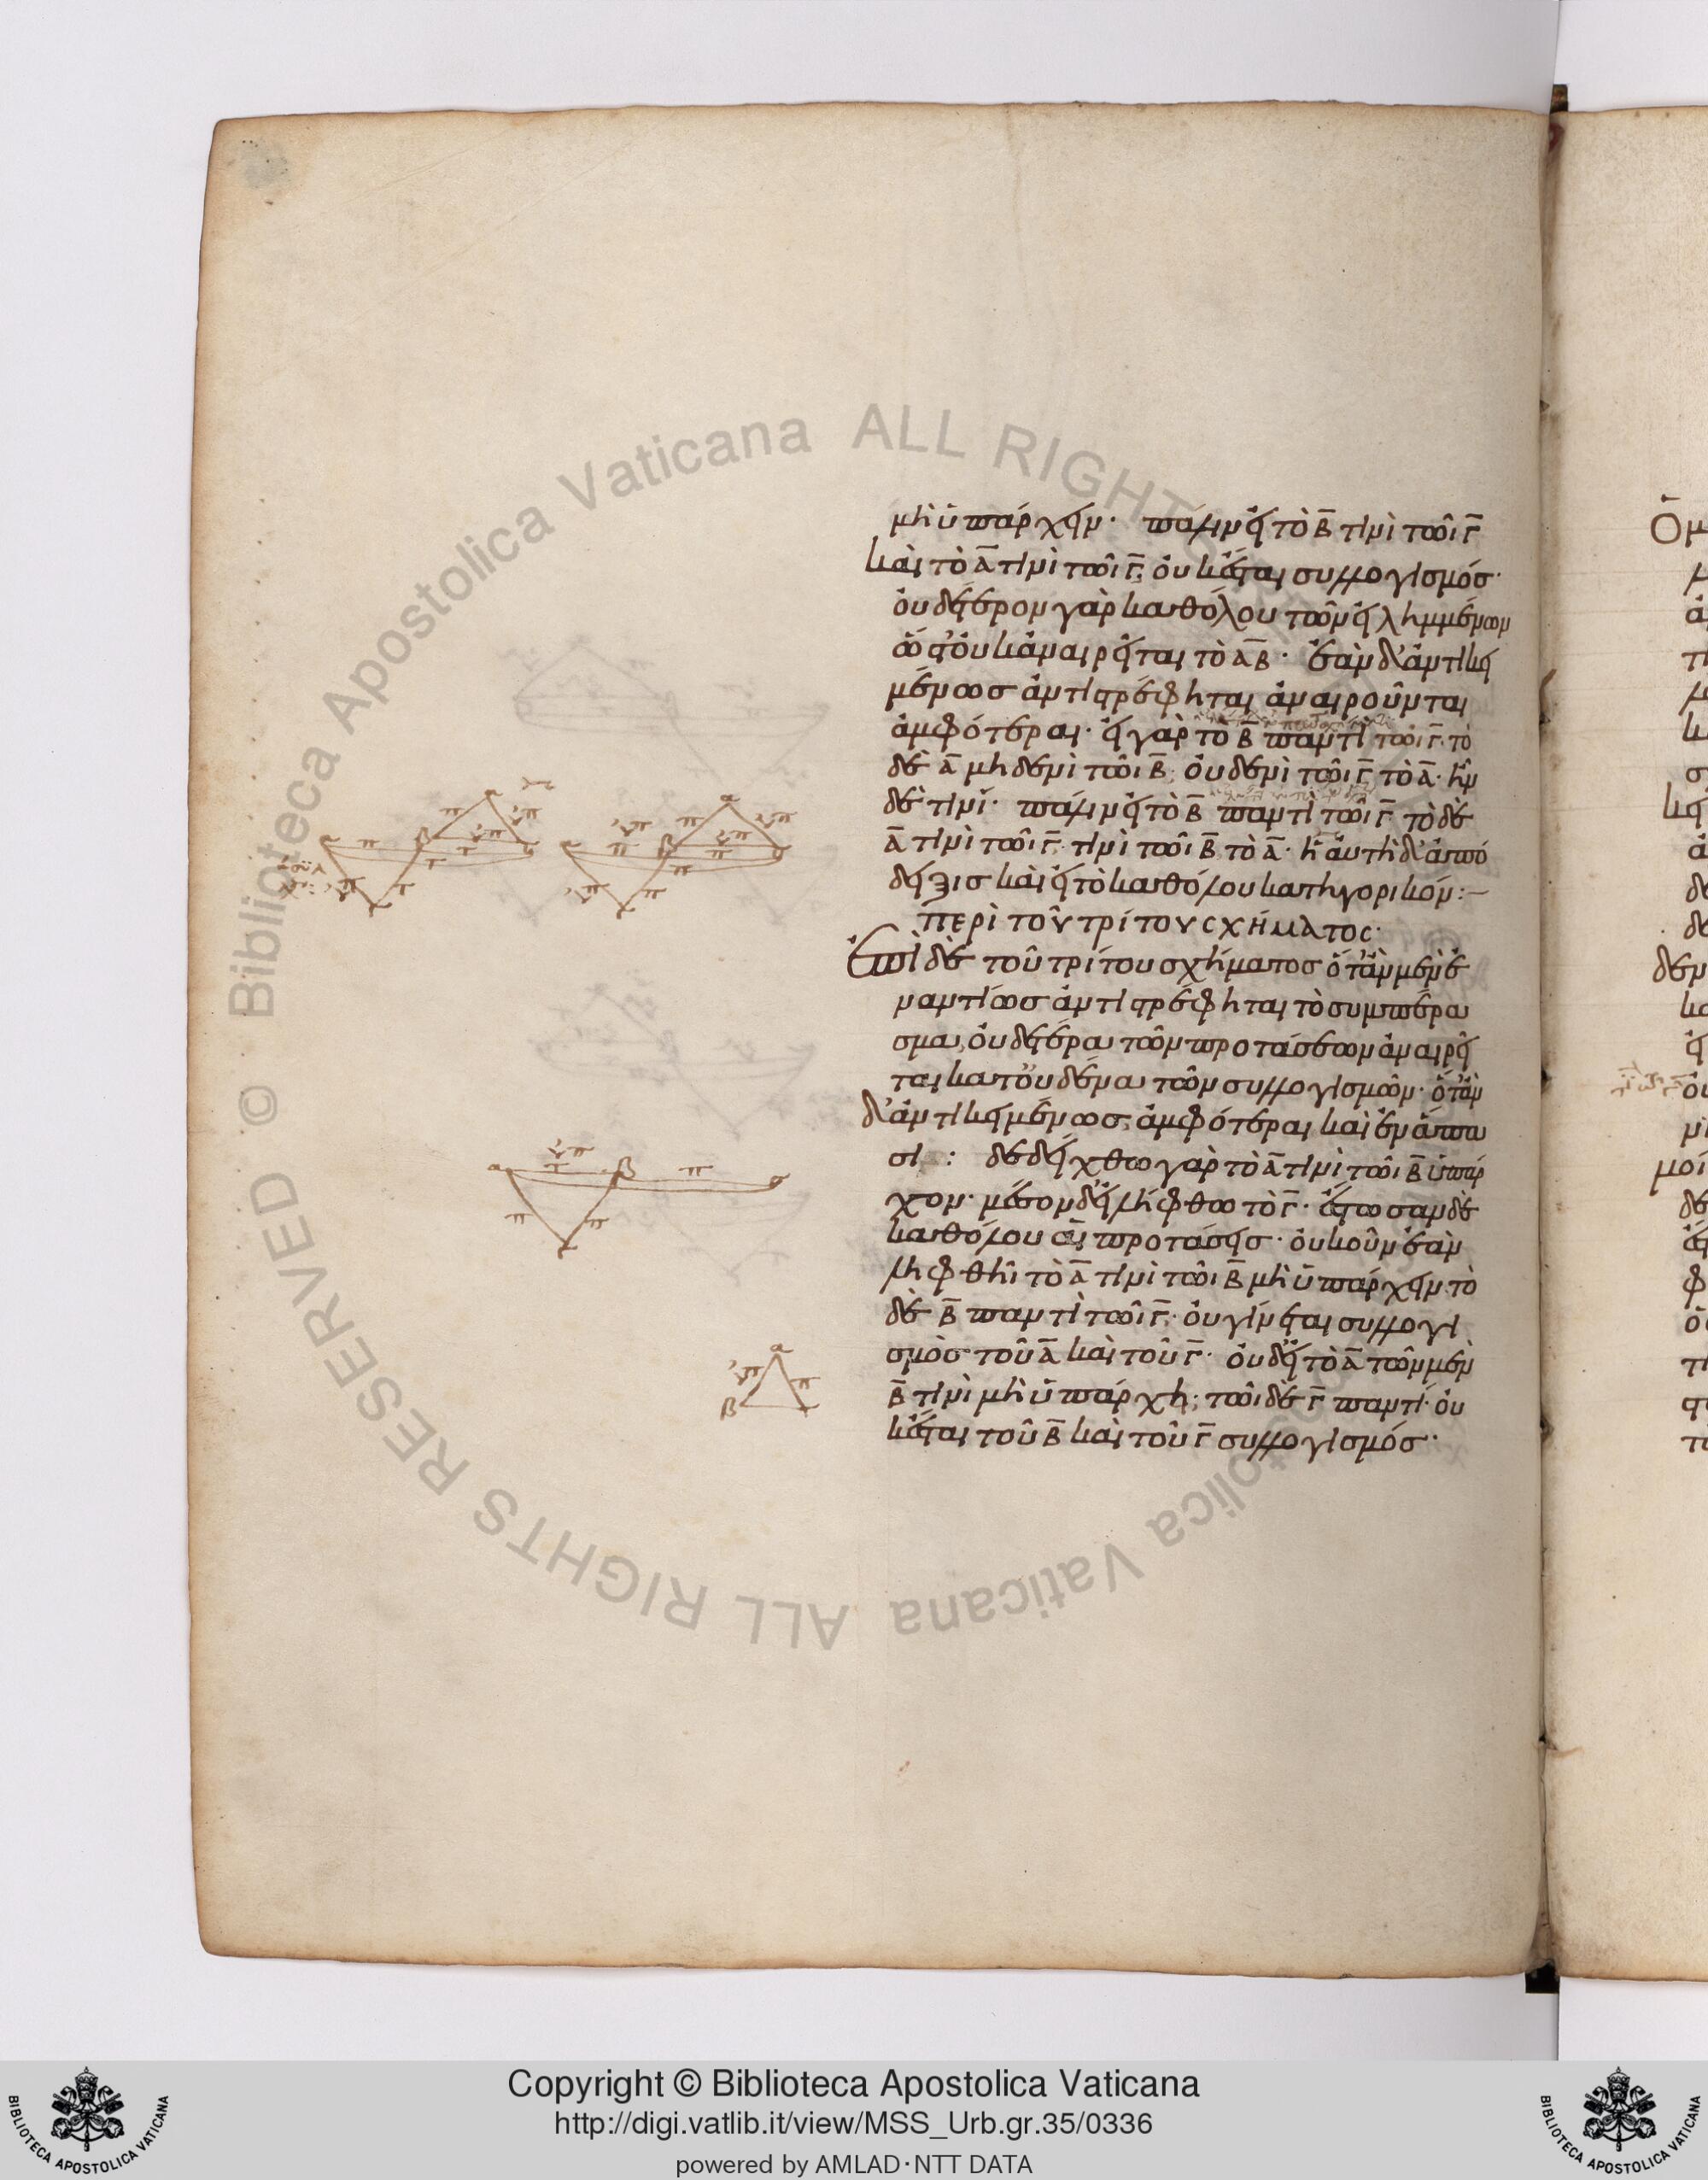 μὴ ὑπάρχειν· πάλιν εἰ τὸ Β̅ τινὶ τῶι Γ̅
καὶ τὸ Α̅ τινὶ τῶι Γ̅· οὐκ ἔσται συλλογισμός·
οὐδέτερον γὰρ καθόλου τῶν εἰλημμένων
ὥστ' οὐκ ἀναιρεῖται τὸ Α̅Β̅· ἐὰν δ' ἀντικει
μένως ἀντιστρέφηται ἀναιροῦνται
ἀμφότεραι· εἰ γὰρ τὸ Β̅ παντὶ τῶι Γ̅· τὸ
δὲ Α̅ μηδενὶ τῶι Β̅· οὐδενὶ τῶι Γ̅ τὸ Α̅· ἦν
δὲ τινί· πάλιν εἰ τὸ Β̅ παντὶ τῶι Γ̅ τὸ δὲ
Α̅ τινὶ τῶι Γ̅· τινὶ τῶι Β̅ τὸ Α̅· ἡ αὐτὴ δ' ἀπό
δειξις καὶ εἰ τὸ καθόλου κατηγορικόν:–
περὶ τοῦ τρίτου σχήματος·
Ἐπὶ δὲ τοῦ τρίτου σχήματος ὅταν μὲν ἐ
ναντίως ἀντιστρέφηται τὸ συμπέρα
σμα, οὐδετέρα τῶν προτάσεων ἀναιρεῖ
ται κατ' οὐδένα τῶν συλλογισμῶν· ὅταν
δ' ἀντικειμένως, ἀμφότεραι καὶ ἐν ἅπα
σι : δεδείχθω γὰρ τὸ Α̅ τινὶ τῶι Β̅ ὑπάρ
χον· μέσον δ' εἰλήφθω τὸ Γ̅· ἔστωσαν δὲ
καθόλου αἱ προτάσεις· οὐκοῦν ἐὰν
ληφθῆι τὸ Α̅ τινὶ τῶι Β̅ μὴ ὑπάρχειν· τὸ
δὲ Β̅ παντὶ τῶι Γ̅· οὐ γίνεται συλλογι
σμὸς τοῦ Α̅ καὶ τοῦ Γ̅· οὐδ' εἰ τὸ Α̅ τῶι μὲν
Β̅ τινὶ μὴ ὑπάρχηι· τῶι δὲ Γ̅ παντί· οὐ
κ ἔσται τοῦ Β̅ καὶ τοῦ Γ̅ συλλογισμός··
Copyright © Biblioteca Apostolica Vaticana
http://digi.vatlib.it/view/MSS_Urb.gr.35/0336
powered by AMLAD·NTT DATA
BIBLIOTECA APOSTOLICA VATICANA
BIBLIOTECA APOSTOLICA VATICANA
© Biblioteca Apostolica Vaticana ALL RIGHTS RESERVED